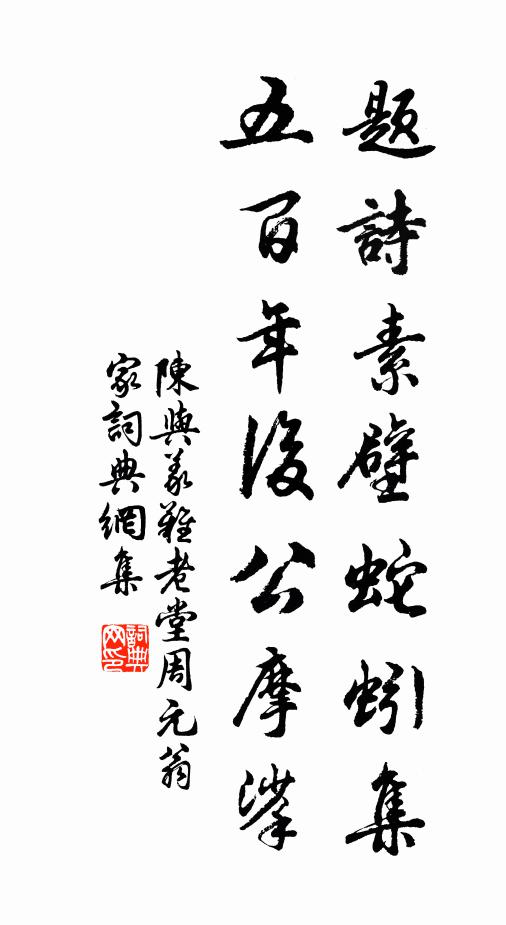 題詩素壁蛇蚓集
五百年後公摩挲
陳與義難老堂周元翁
家詞典網集
詞典
网印